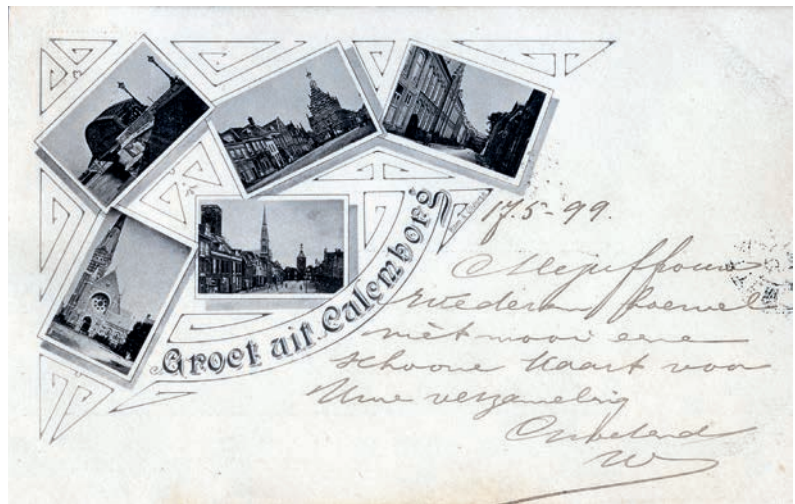 Groet uit Culemborg
17.5-99.
Mejuffrouw
Wederom hoewel
niet mooi eene
schoone Kaart voor
Uwe verzameling
Onbekend
W